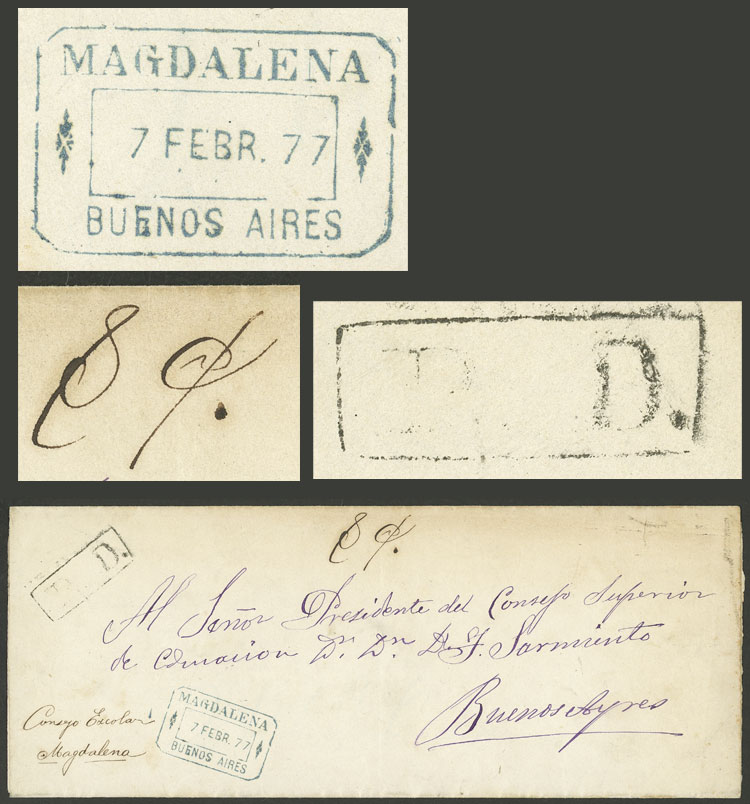 MAGDALENA
7 FEBR. 77
BUENOS AIRES
P. D.
P. D.
Al Señor Presidente del Consejo Superior
de Educacion Dr. Dn. D. F. Sarmiento
Buenos Ayres
Consejo Escolar
Magdalena
MAGDALENA
7 FEBR. 77
BUENOS AIRES